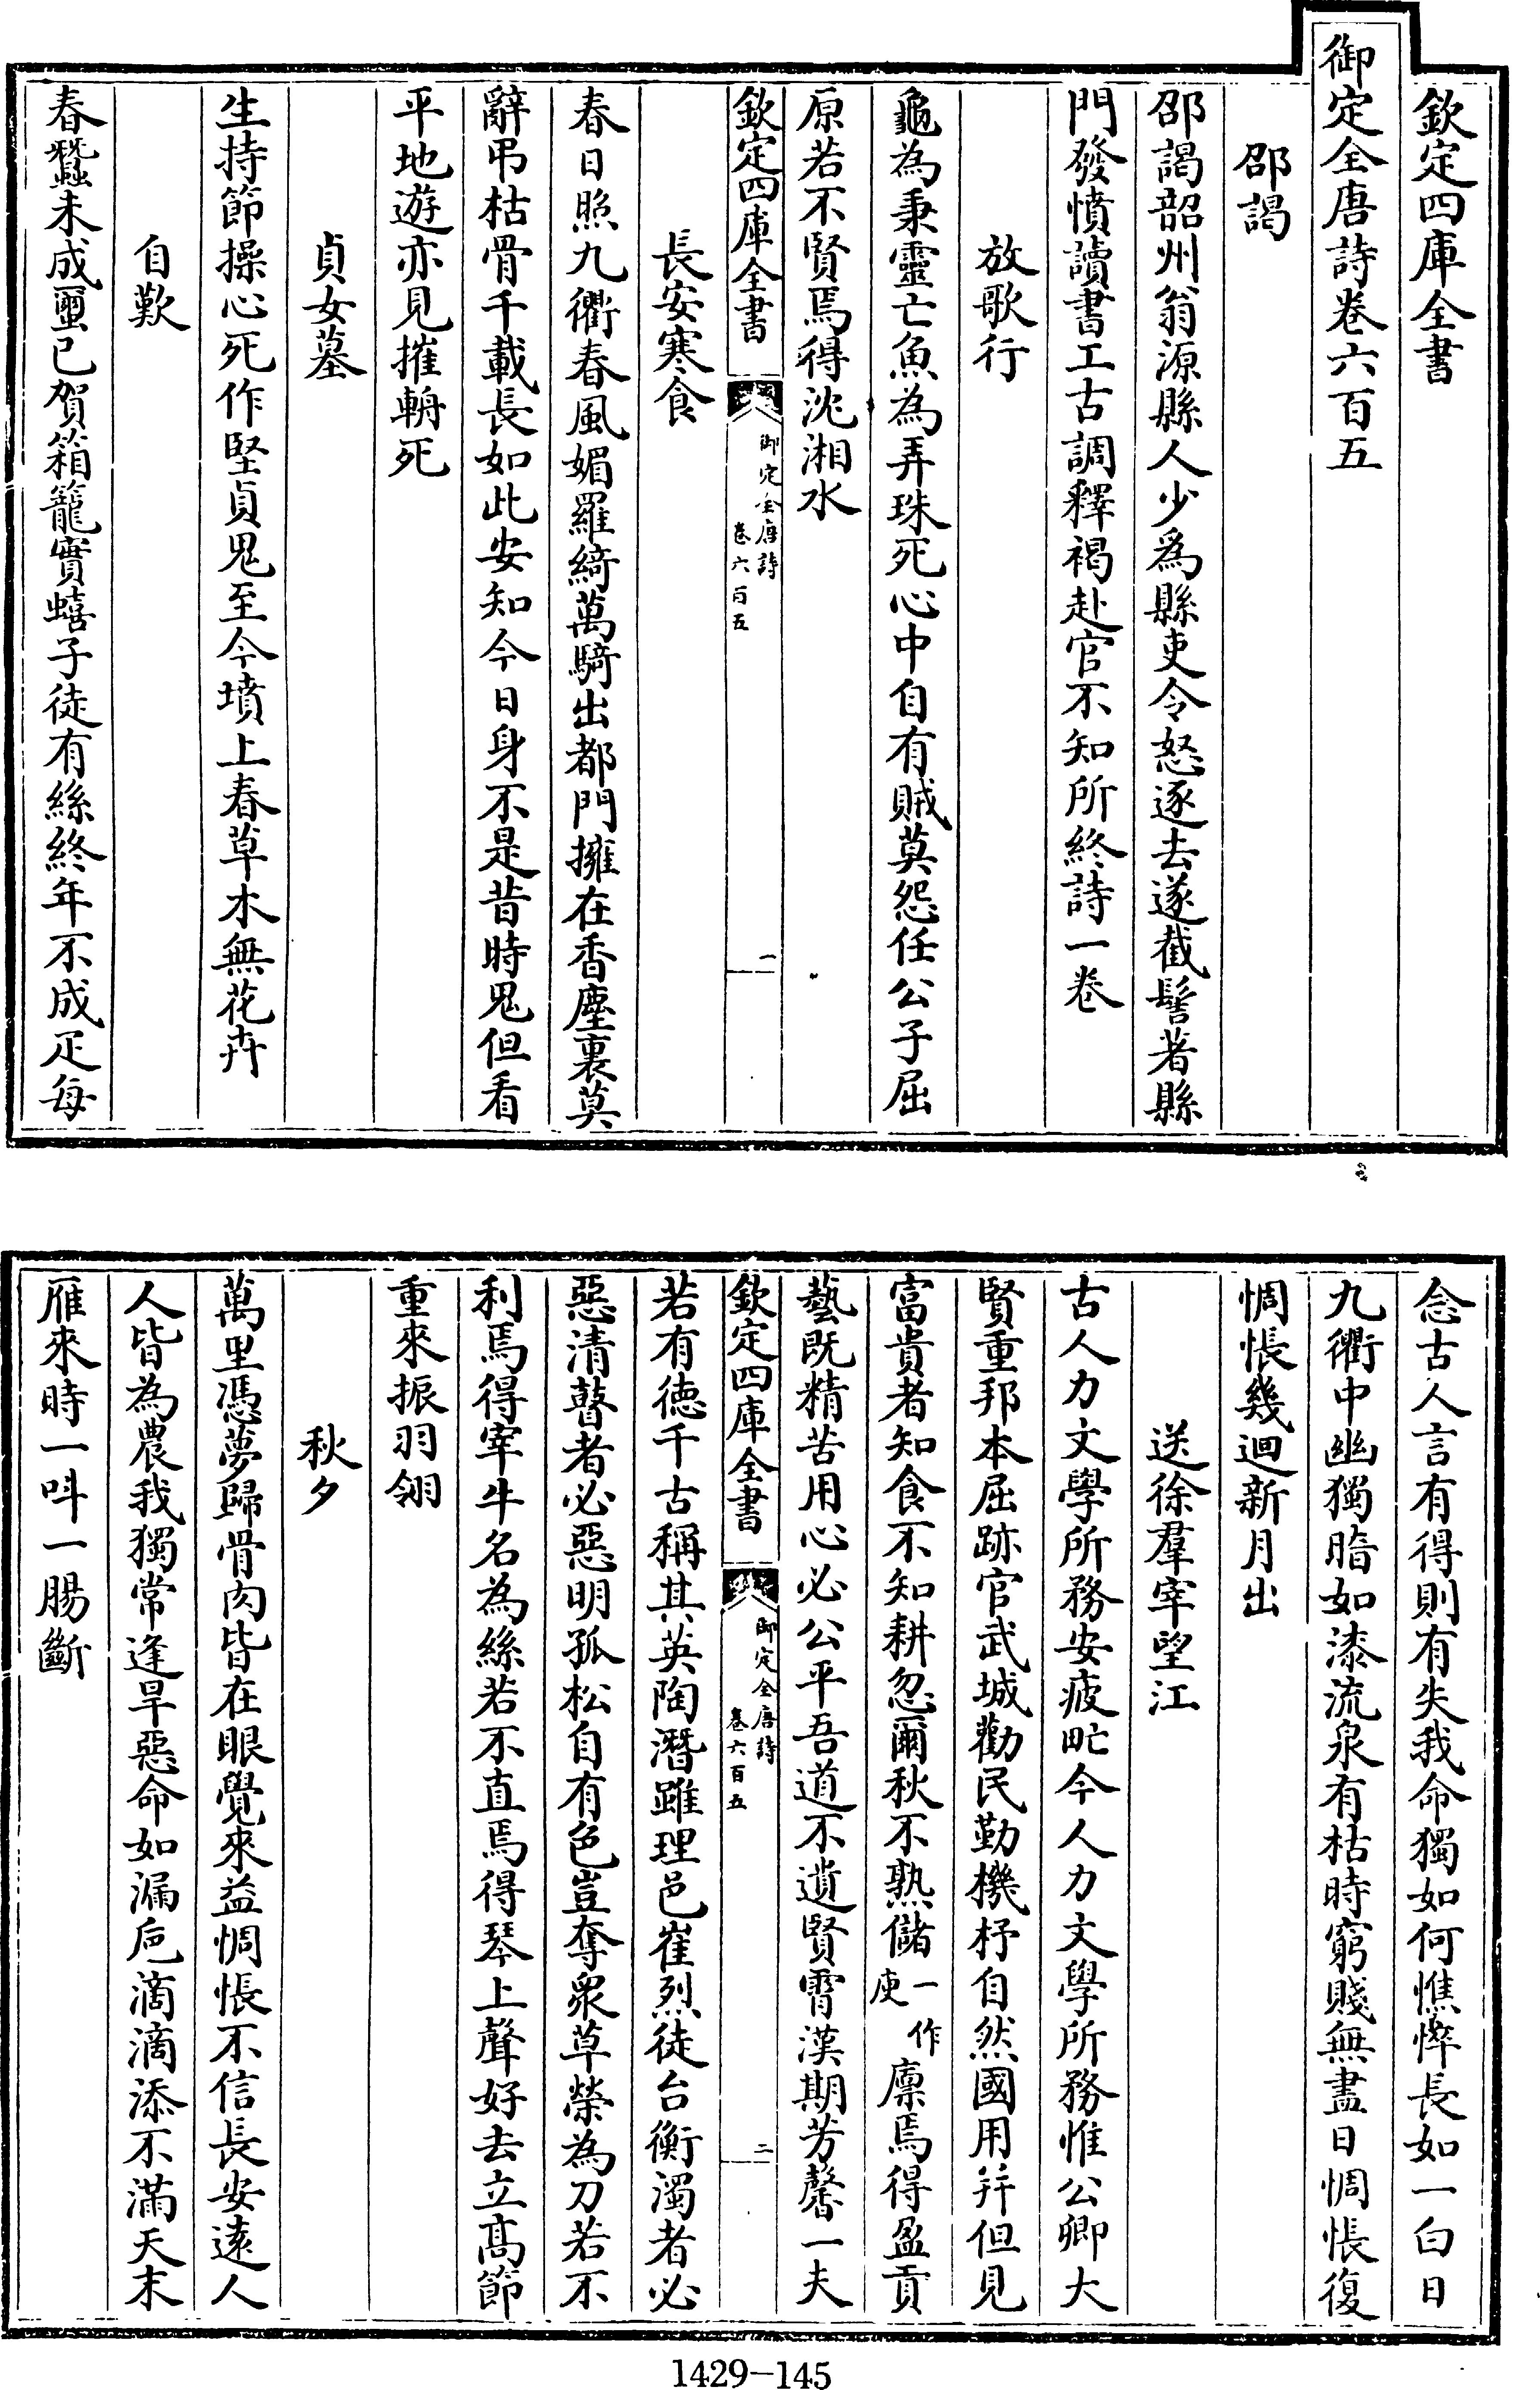 欽定四庫全書
御定全唐詩卷六百五
邵謁
邵謁韶州翁源縣人少為縣吏令怒逐去遂截髻著縣
門發憤讀書工古調釋褐赴官不知所終詩一卷
放歌行
龜為秉靈亡魚為弄珠死心中自有賊莫怨任公子屈
原若不賢焉得沈湘水
欽定四庫全書
御定全唐詩
卷六百五
一
長安寒食
春日照九衢春風媚羅綺萬騎出都門擁在香塵裏莫
辭弔枯骨千載長如此安知今日身不是昔時鬼但看
平地遊亦見摧輈死
貞女墓
生持節操心死作堅貞鬼至今墳上春草木無花卉
自歎
春蠶未成繭已賀箱籠實蟢子徒有絲終年不成疋每
念古人言有得則有失我命獨如何憔悴長如一白日
九衢中幽獨暗如漆流泉有枯時窮賤無盡日惆悵復
惆悵幾迴新月出
送徐羣宰望江
古人力文學所務安疲甿今人力文學所務惟公卿大
賢重邦本屈跡官武城勸民勤機杼自然國用并但見
富貴者知食不知耕忽爾秋不熟儲一作庾廪焉得盈貢
藝既精苦用心必公平吾道不遺賢霄漢期芳馨一夫
欽定四庫全書
御定全唐詩
卷六百五
二
若有徳千古稱其英陶潛雖理邑崔烈徒台衡濁者必
惡清瞽者必惡明孤松自有色豈奪衆草榮為刀若不
利焉得宰牛名為絲若不直焉得琴上聲好去立髙節
重來振羽翎
秋夕
萬里憑夢歸骨肉皆在眼覺來益惆悵不信長安逺人
人皆為農我獨常逢旱惡命如漏巵滴滴添不滿天末
雁來時一叫一腸斷
1429-145